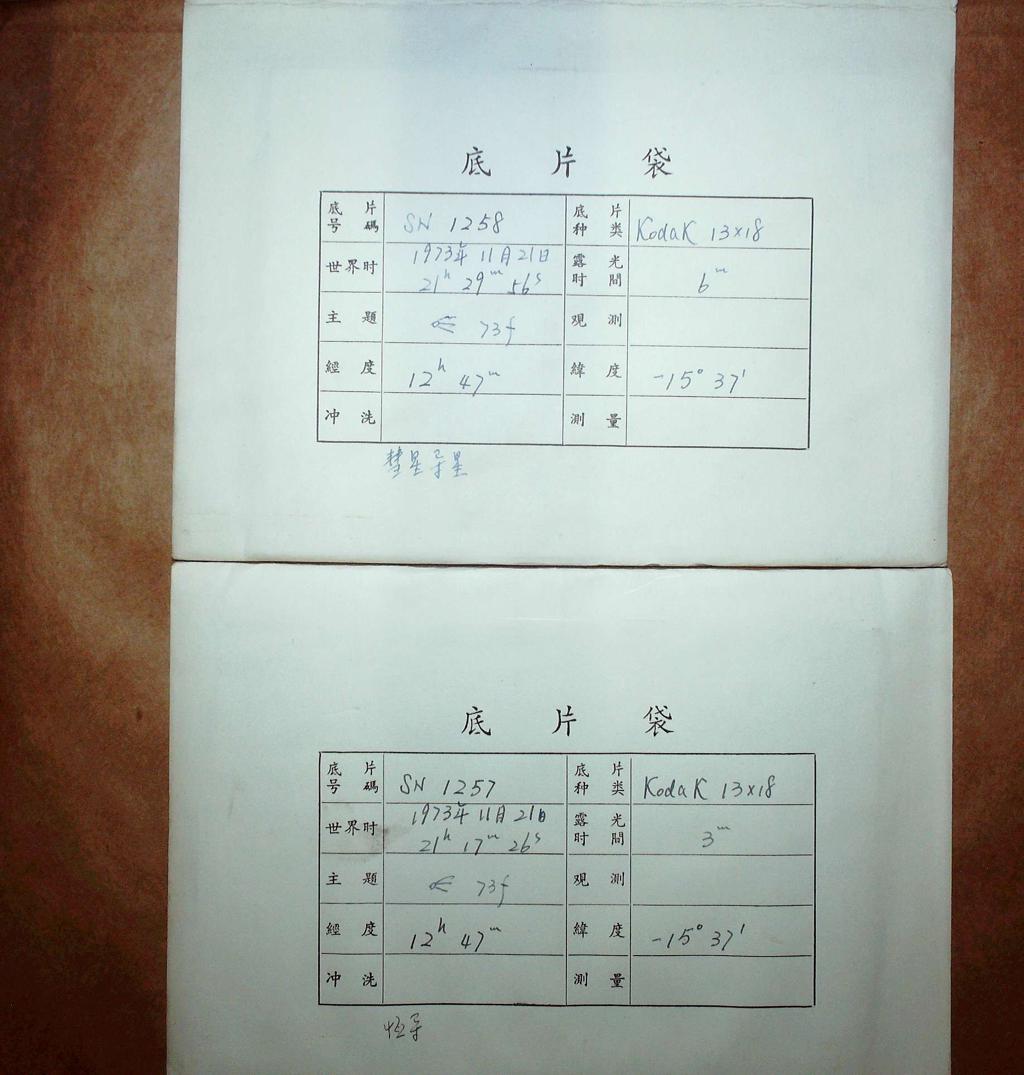 底 片 袋
底片号碼 SN 1258 底片种类 Kodak 13×18
世界时 1973年 11月 21日 21ʰ 29ᵐ 56ˢ 露光时間 6ᵐ
主題 73f 观測
經度 12ʰ 47ᵐ 緯度 -15° 37′
冲洗 測量
彗星导星
底 片 袋
底片号碼 SN 1257 底片种类 Kodak 13×18
世界时 1973年 11月 21日 21ʰ 17ᵐ 26ˢ 露光时間 3ᵐ
主題 73f 观測
經度 12ʰ 47ᵐ 緯度 -15° 37′
冲洗 測量
恆导